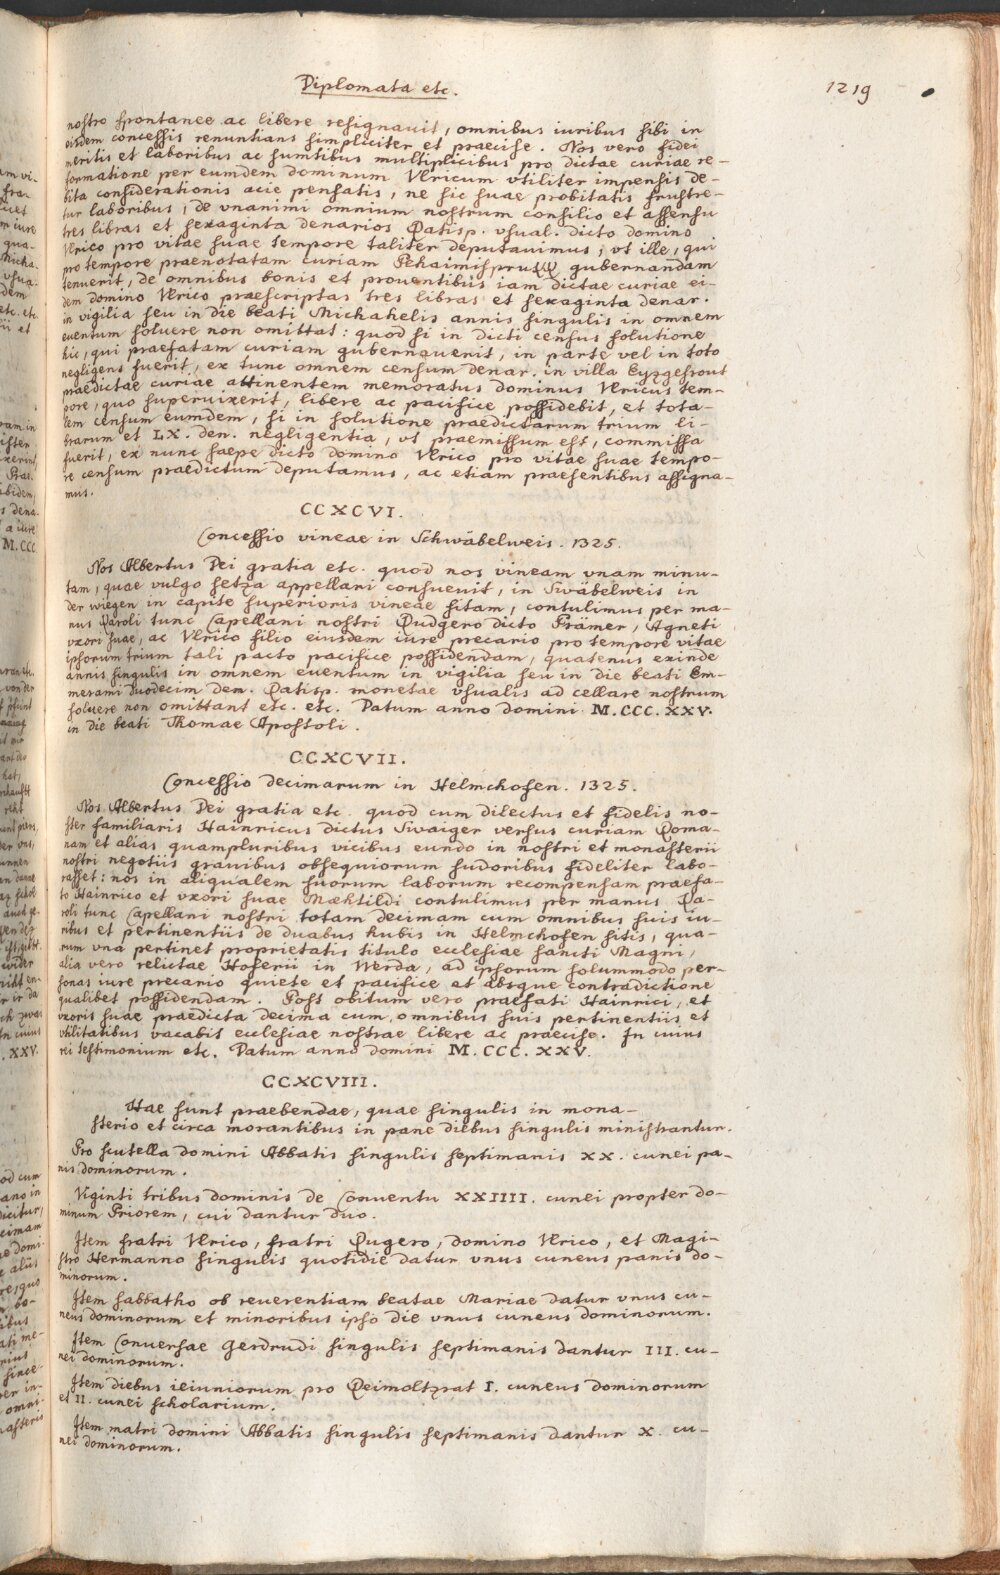 Diplomata etc.
1219
nostro spontanee ac libere resignauit, omnibus iuribus sibi in
eisdem concessis renuntians simpliciter et praecise. Nos vero fidei
meritis et laboribus ac sumtibus multiplicibus pro dictae curiae re-
formatione per eumdem dominum Vlricum vtiliter impensis de-
bita considerationis acie pensatis, ne sic suae probitatis frustre-
tur laboribus, de vnanimi omnium nostrum consilio et assensu
tres libras et sexaginta denarios Ratisp. vsual. dicto domino
Vlrico pro vitae suae tempore taliter deputauimus, vt ille, qui
pro tempore praenotatam curiam gubernandam
tenuerit, de omnibus bonis et prouentibus iam dictae curiae ei-
dem domino Vlrico praescriptas tres libras et sexaginta denar.
in vigilia seu in die beati Michahelis annis singulis in omnem
euentum soluere non omittat: quod si in dicti census solutione
hic, qui praefatam curiam gubernauerit, in parte vel in toto
negligens fuerit, ex tunc omnem censum denar. in villa Eyzgesrout
praedictae curiae attinentem memoratus dominus Vlricus tem-
pore, quo superuixerit, libere ac pacifice possidebit, et tota-
lem censum eumdem, si in solutione praedictarum trium li-
brarum et LX. den. negligentia, vt praemissum est, commissa
fuerit, ex nunc saepe dicto domino Vlrico pro vitae suae tempo-
re censum praedictum deputamus, ac etiam praesentibus assigna-
mus.
CCXCVI.
Concessio vineae in Schwäbelweis. 1325.
Nos Albertus Dei gratia etc. quod nos vineam vnam minu-
tam, quae vulgo setza appellari consueuit, in Swäbelweis in
der wiegen in capite superioris vineae sitam, contulimus per ma-
nus Karoli tunc Capellani nostri Rudgero dicto Prämer, Agneti
vxori suae, ac Vlrico filio eiusdem iure precario pro tempore vitae
ipsorum trium tali pacto pacifice possidendam, quatenus exinde
annis singulis in omnem euentum in vigilia seu in die beati Em-
merami duodecim den. Ratisp. monetae vsualis ad cellare nostrum
soluere non omittant etc. etc. Datum anno domini M.CCC.XXV.
in die beati Thomae Apostoli.
CCXCVII.
Concessio decimarum in Helmckofen. 1325.
Nos Albertus Dei gratia etc. quod cum dilectus et fidelis no-
ster familiaris Hainricus dictus Swaiger versus curiam Roma-
nam et alias quampluribus vicibus eundo in nostri et monasterii
nostri negotiis grauibus obsequiorum sudoribus fideliter labo-
rasset: nos in aliqualem suorum laborum recompensam praefa-
to Hainrico et vxori suae Mæhtildi contulimus per manus Ka-
roli tunc Capellani nostri totam decimam cum omnibus suis iu-
ribus et pertinentiis de duabus hubis in Helmckofen sitis, qua-
rum vna pertinet proprietatis titulo ecclesiae sancti Magni,
alia vero relictae Hoferii in Werda, ad ipsorum solummodo per-
sonas iure precario quiete et pacifice et absque contradictione
qualibet possidendam. Post obitum vero praefati Hainrici, et
vxoris suae praedicta decima cum omnibus suis pertinentiis et
vtilitatibus vacabit ecclesiae nostrae libere ac praecise. In cuius
rei testimonium etc. Datum anno domini M.CCC.XXV.
CCXCVIII.
Hae sunt praebendae, quae singulis in mona-
sterio et circa morantibus in pane diebus singulis ministrantur.
Pro scutella domini Abbatis singulis septimanis XX. cunei pa-
nis dominorum.
Viginti tribus dominis de Conuentu XXIIII. cunei propter do-
minum Priorem, cui dantur duo.
Item fratri Vlrico, fratri Rugero, domino Vlrico, et Magi-
stro Hermanno singulis quotidie datur vnus cuneus panis do-
minorum.
Item sabbatho ob reuerentiam beatae Mariae datur vnus cu-
neus dominorum et minoribus ipso die vnus cuneus dominorum.
Item Conuersae Gerdrudi singulis septimanis dantur III. cu-
nei dominorum.
Item diebus ieiuniorum pro Reimoltzrat I. cuneus dominorum
et II. cunei scholarium.
Item matri domini Abbatis singulis septimanis dantur X. cu-
nei dominorum.